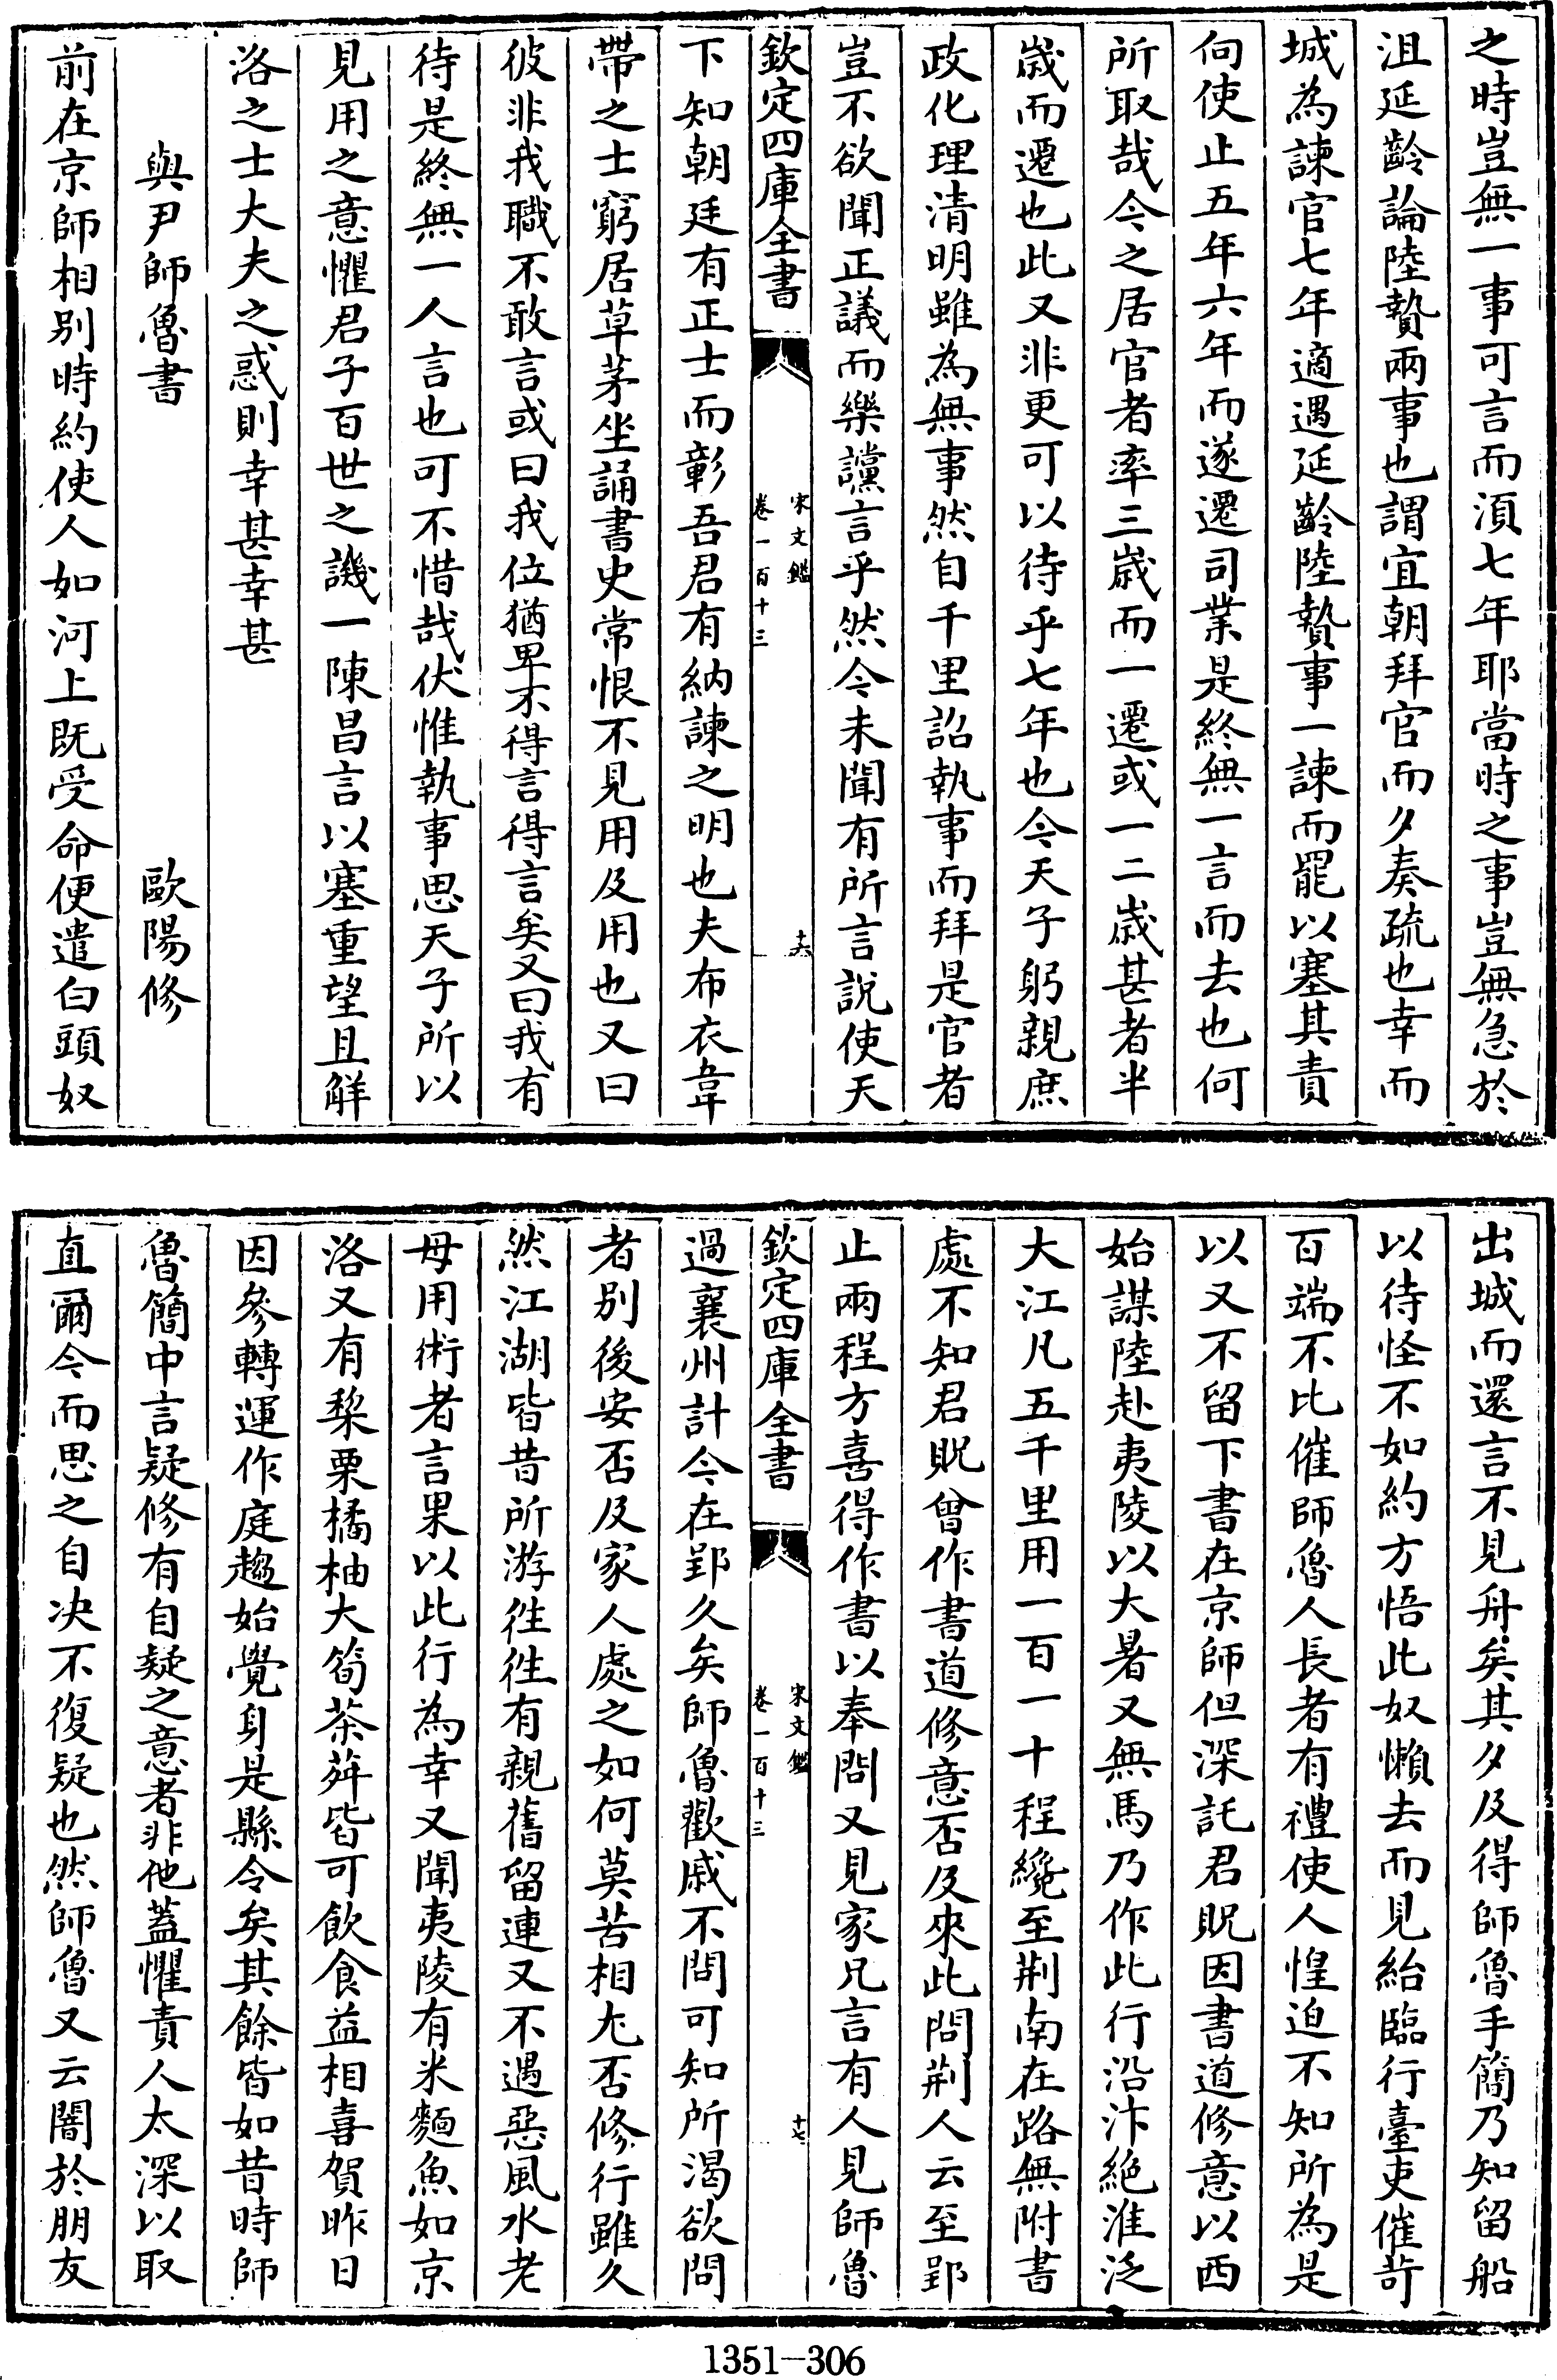 之時豈無一事可言而湏七年耶當時之事豈無急於
沮延齡論陸贄兩事也謂宜朝拜官而夕奏疏也幸而
城為諫官七年適遇延齡陸贄事一諫而罷以塞其責
向使止五年六年而遂遷司業是終無一言而去也何
所取哉今之居官者率三歳而一遷或一二歳甚者半
歳而遷也此又非更可以待乎七年也今天子躬親庶
政化理清明雖為無事然自千里詔執事而拜是官者
豈不欲聞正議而樂讜言乎然今未聞有所言說使天
欽定四庫全書
宋文鑑
卷一百十三
十六
下知朝廷有正士而彰吾君有納諫之明也夫布衣韋
帶之士窮居草茅坐誦書史常恨不見用及用也又曰
彼非我職不敢言或曰我位猶卑不得言得言矣又曰我有
待是終無一人言也可不惜哉伏惟執事思天子所以
見用之意懼君子百世之譏一陳昌言以塞重望且解
洛之士大夫之惑則幸甚幸甚
與尹師魯書　歐陽修
前在京師相别時約使人如河上既受命便遣白頭奴
出城而還言不見舟矣其夕及得師魯手簡乃知留船
以待怪不如約方悟此奴懶去而見紿臨行臺吏催苛
百端不比催師魯人長者有禮使人惶迫不知所為是
以又不留下書在京師但深託君貺因書道修意以西
始謀陸赴夷陵以大暑又無馬乃作此行沿汴絶淮泛
大江凡五千里用一百一十程纔至荆南在路無附書
處不知君貺曾作書道修意否及來此問荆人云至郢
止兩程方喜得作書以奉問又見家兄言有人見師魯
欽定四庫全書
宋文鑑
卷一百十三
十七
過襄州計今在郢久矣師魯歡戚不問可知所渴欲問
者别後安否及家人處之如何莫苦相尤否修行雖久
然江湖皆昔所游徃徃有親舊留連又不遇惡風水老
母用術者言果以此行為幸又聞夷陵有米麵魚如京
洛又有棃栗橘柚大筍茶荈皆可飲食益相喜賀昨日
因參轉運作庭趨始覺身是縣令矣其餘皆如昔時師
魯簡中言疑修有自疑之意者非他蓋懼責人太深以取
直爾今而思之自决不復疑也然師魯又云闇於朋友
1351—306